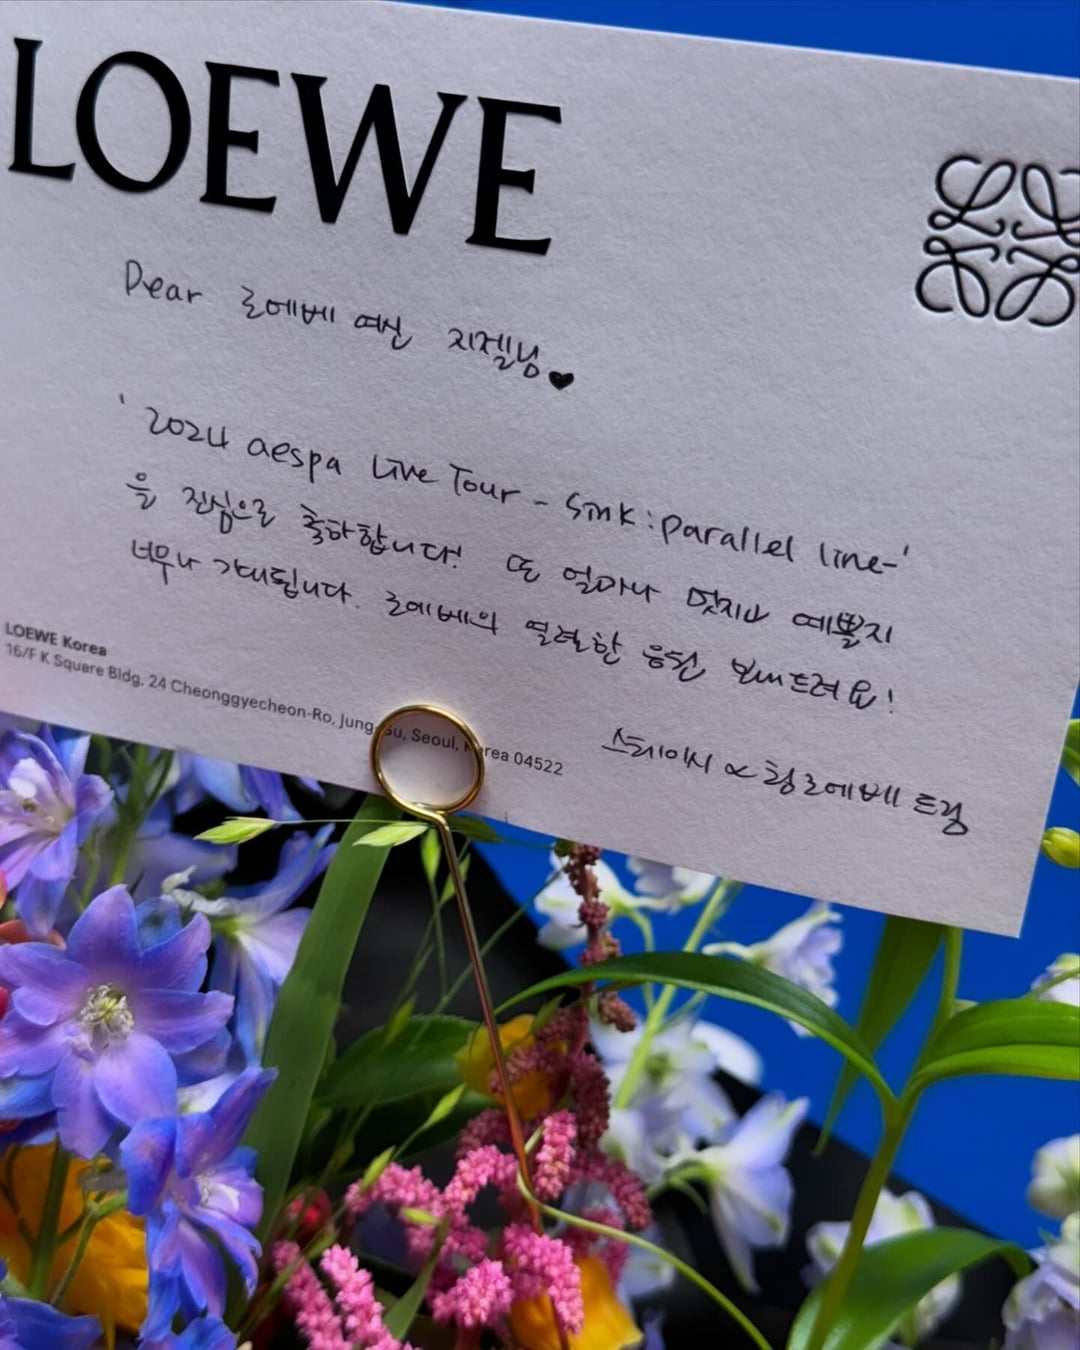 LOEWE
Dear 로에베 여신 지젤님♥
'2024 aespa Live Tour - Synk : parallel line-'
을 진심으로 축하합니다! 또 얼마나 멋지고 예쁠지
너무나 기대됩니다. 로에베의 열렬한 응원 보내드려요!
LOEWE Korea
16/F K Square Bldg, 24 Cheonggyecheon-Ro, Jung-Gu, Seoul, Korea 04522
스테이시 로에베 드림